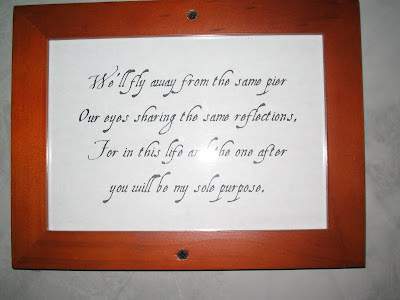 We'll fly away from the same pier
Our eyes sharing the same reflections,
For in this life and the one after
you will be my sole purpose.